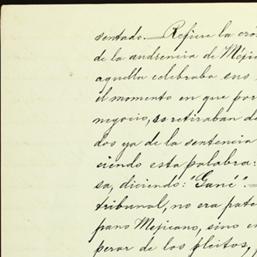 sentado.—Refiere la cró
de la audiencia de Méji
aquella celebraba sus
el momento en que por
negocio, se retiraban d
dos ya de la sentencia
ciendo esta palabra:
sa, diciendo: "Gané".—
tribunal, no era pate
pano Mejicano, sino en
perar de los pleitos,